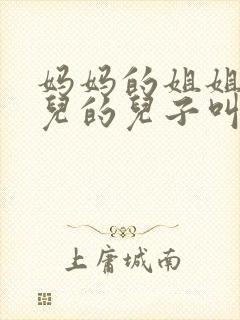 妈妈的姐姐
兒的兒子叫
上庸城南